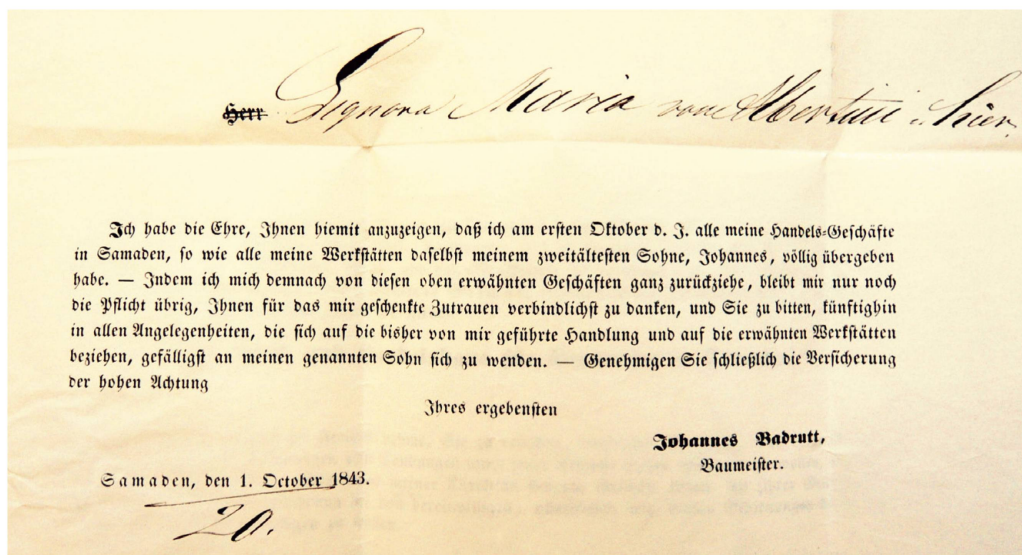 Herr Signora Maria von Albertini in hier.
Ich habe die Ehre, Ihnen hiemit anzuzeigen, daß ich am ersten Oktober d. J. alle meine Handels-Geschäfte
in Samaden, so wie alle meine Werkstätten daselbst meinem zweitältesten Sohne, Johannes, völlig übergeben
habe. — Indem ich mich demnach von diesen oben erwähnten Geschäften ganz zurückziehe, bleibt mir nur noch
die Pflicht übrig, Ihnen für das mir geschenkte Zutrauen verbindlichst zu danken, und Sie zu bitten, künftighin
in allen Angelegenheiten, die sich auf die bisher von mir geführte Handlung und auf die erwähnten Werkstätten
beziehen, gefälligst an meinen genannten Sohn sich zu wenden. — Genehmigen Sie schließlich die Versicherung
der hohen Achtung
Ihres ergebensten
Johannes Badrutt,
Baumeister.
Samaden, den 1. October 1843.
20.